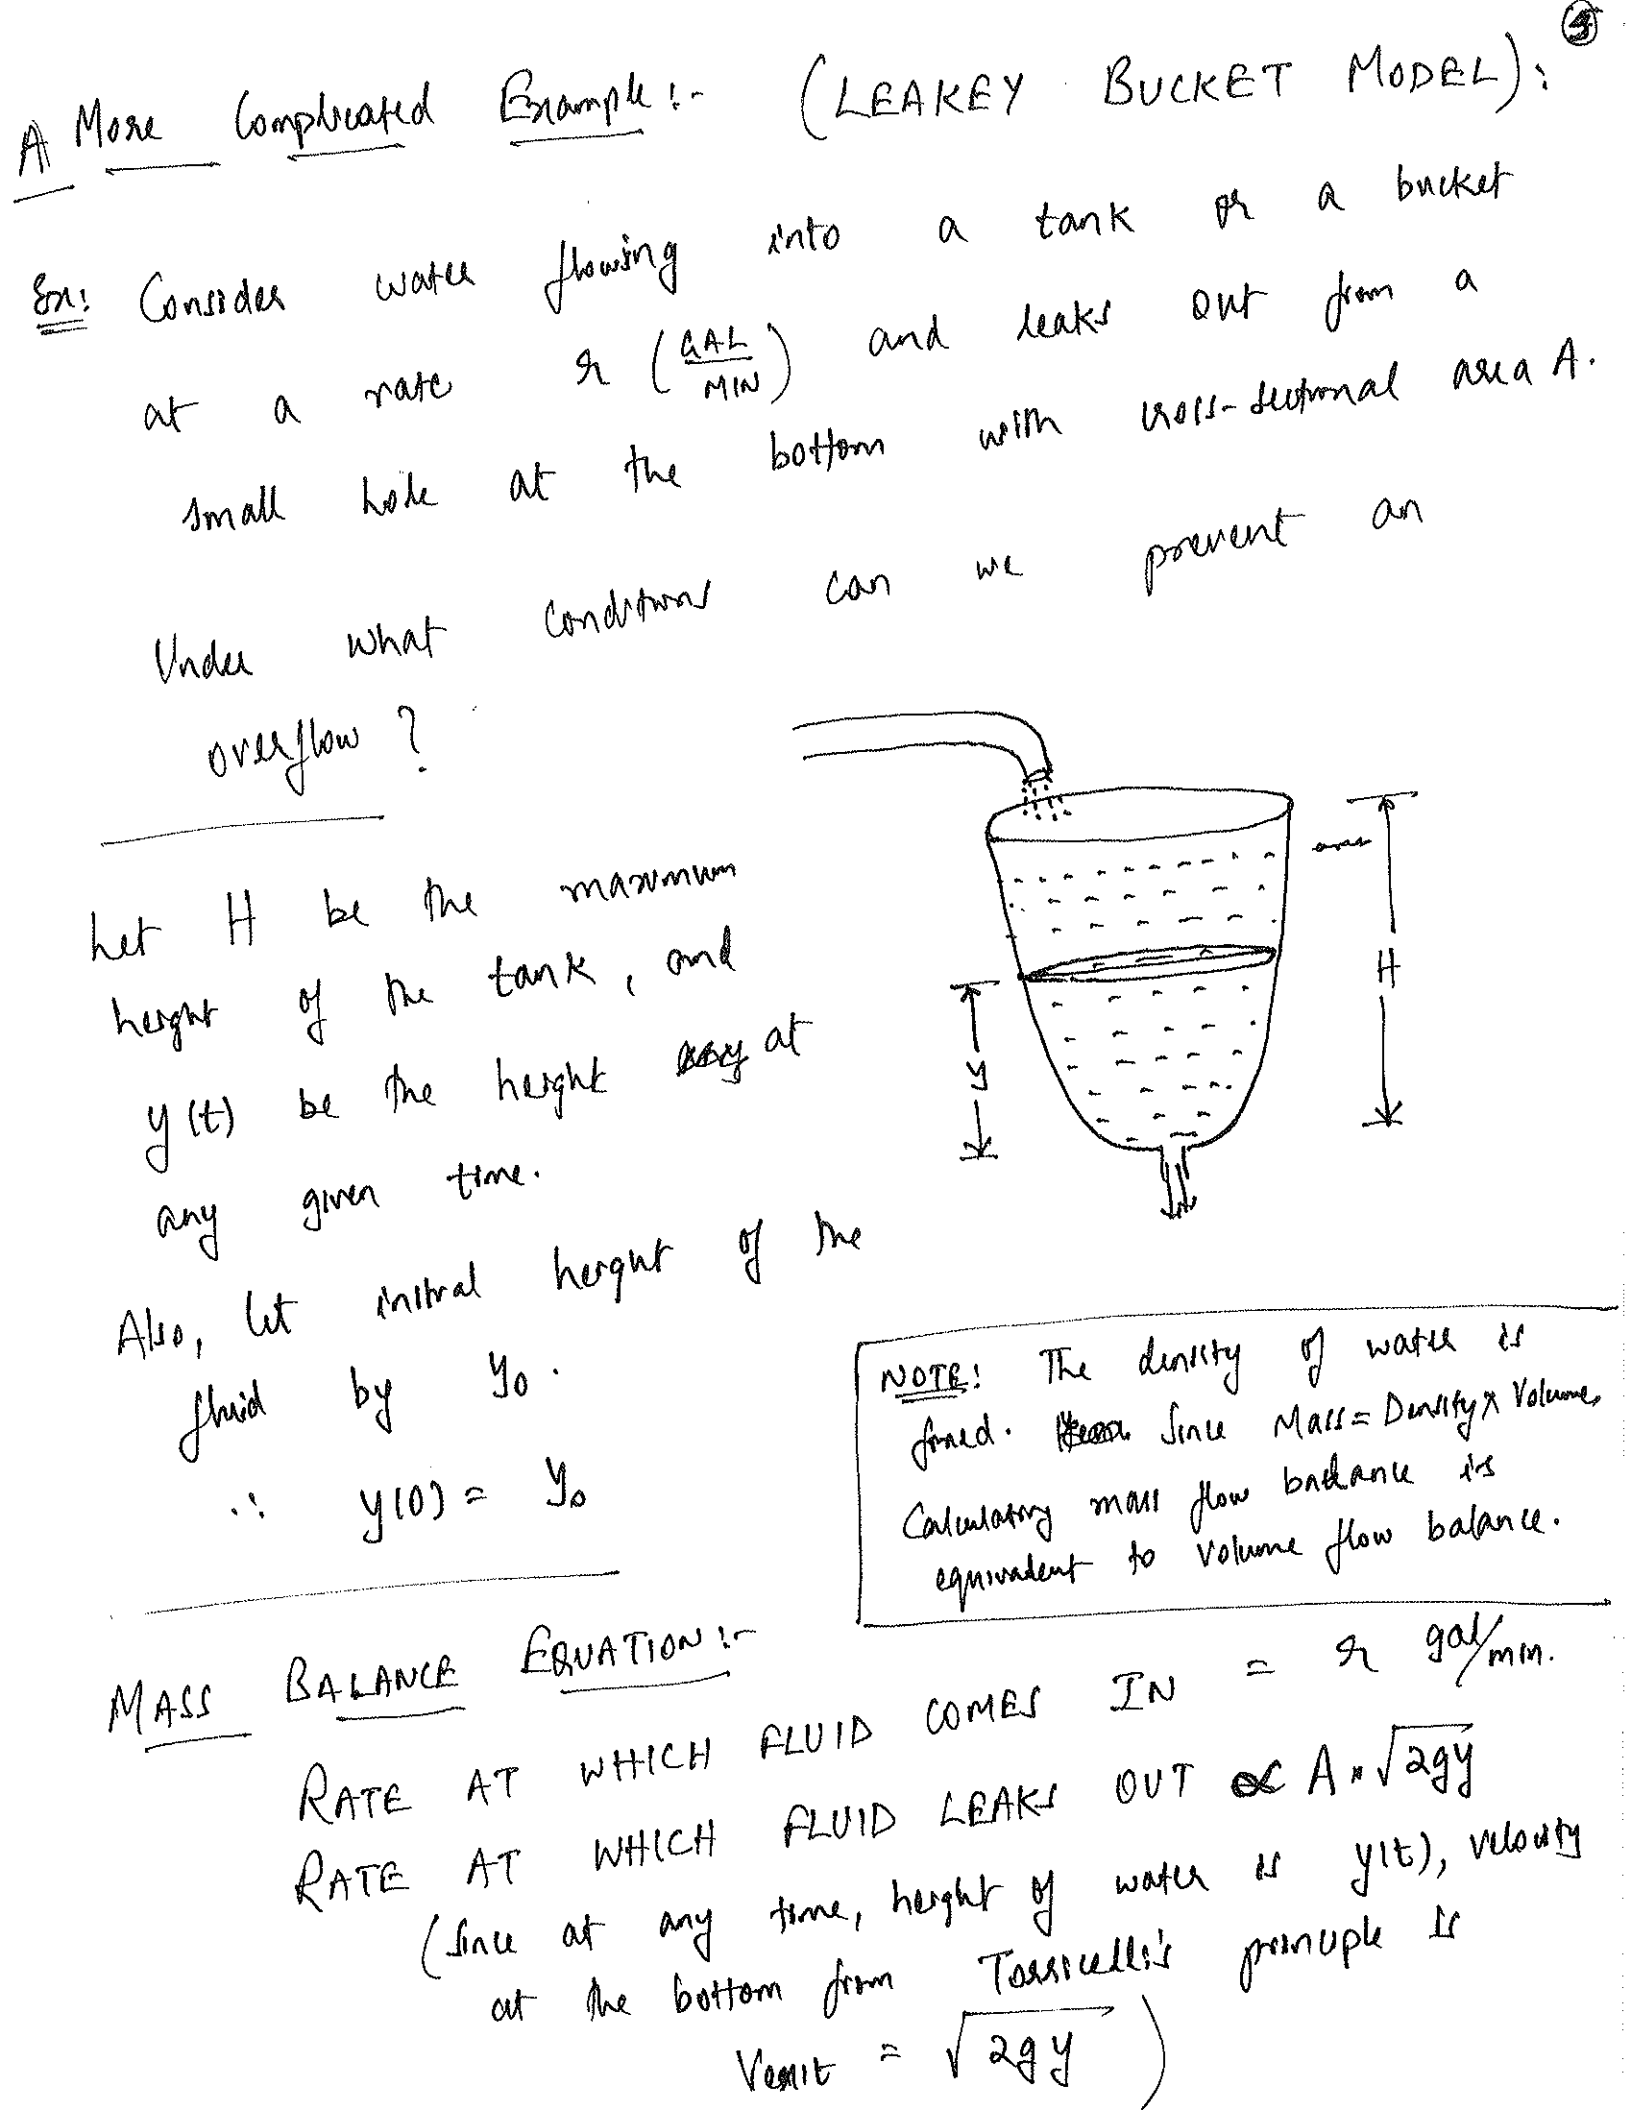 A More Complicated Example :- (LEAKEY BUCKET MODEL):
Ex: Consider water flowing into a tank or a bucket
at a rate r (GAL/MIN) and leaks out from a
small hole at the bottom with cross-sectional area A.
Under what conditions can we prevent an
overflow?
Let H be the maximum
height of the tank, and
y(t) be the height at
any given time.
Also, let initial height of the
fluid by y₀.
∴ y(0) = y₀
H
y
NOTE: The density of water is
fixed. Since Mass = Density x Volume,
Calculating mass flow balance is
equivalent to volume flow balance.
MASS BALANCE EQUATION :-
RATE AT WHICH FLUID COMES IN = r gal/min.
RATE AT WHICH FLUID LEAKS OUT ∝ A * √2gy
(Since at any time, height of water is y(t), velocity
at the bottom from Torricelli's principle is
Vexit = √2gy )